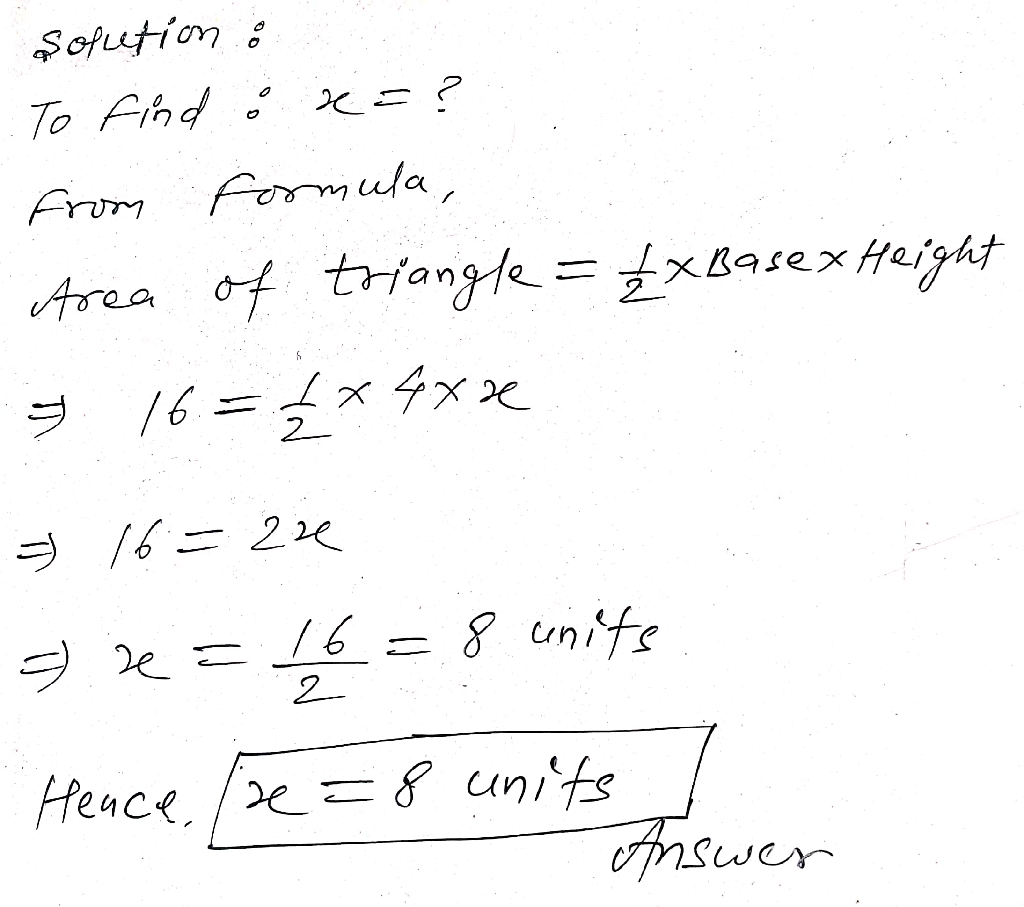 Solution :
To find : x = ?
From formula,
Area of triangle = 1/2 × Base × Height
⇒ 16 = 1/2 × 4 × x
⇒ 16 = 2x
⇒ x = 16/2 = 8 units
Hence, x = 8 units
Answer